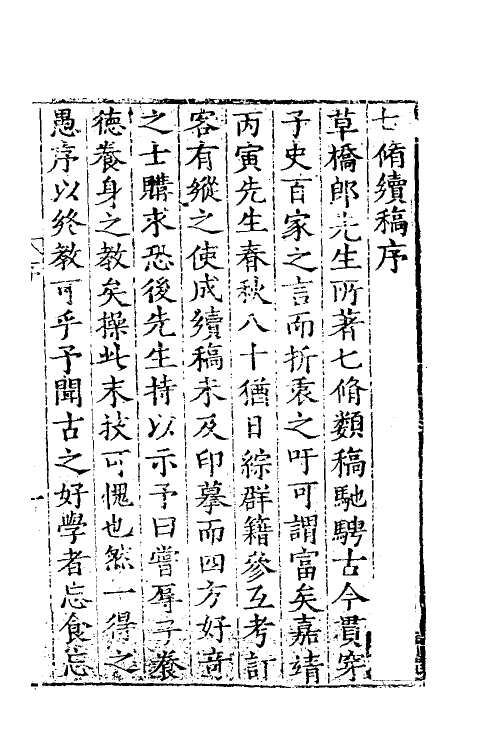 七脩續稿序
草橋郎先生所著七脩類稿馳騁古今貫穿
子史百家之言而折衷之吁可謂富矣嘉靖
丙寅先生春秋八十猶日綜群籍參互考訂
客有縱之使成續稿未及印摹而四方好竒
之士購求恐後先生持以示予曰嘗辱子養
德養身之教矣操此末技可愧也然一得之
愚序以終教可乎予聞古之好學者忘食忘